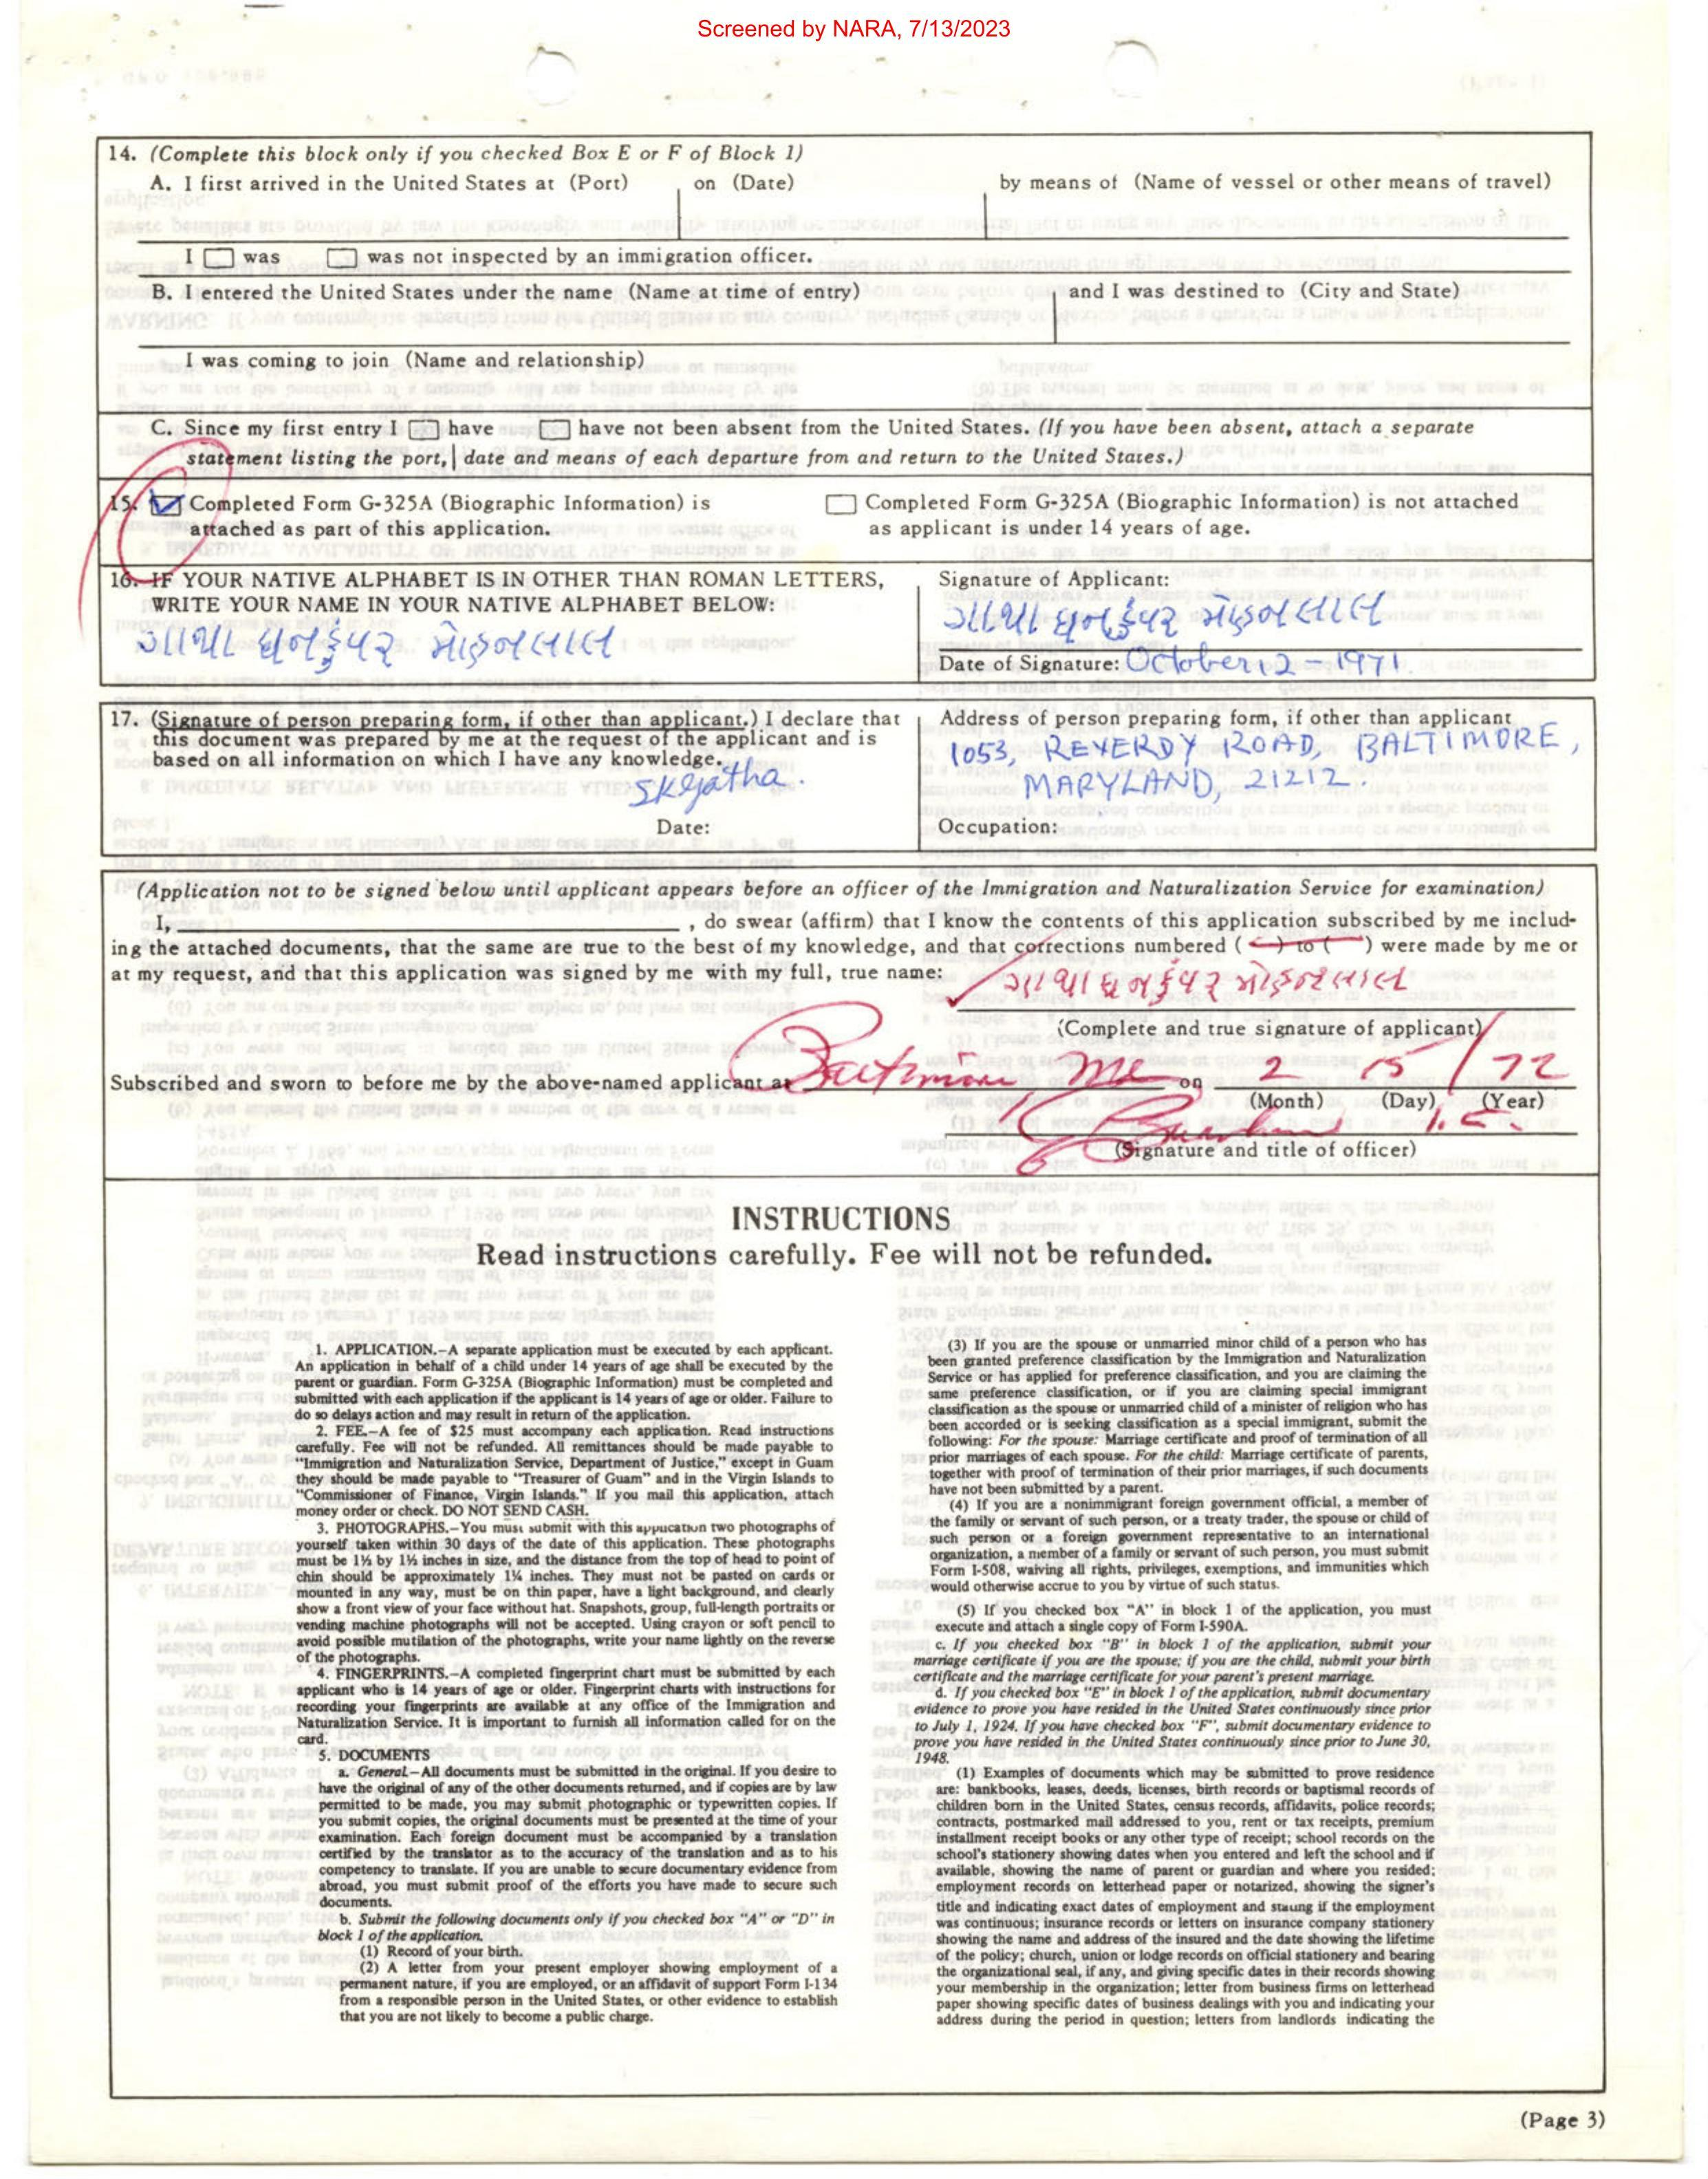 Screened by NARA, 7/13/2023
14. (Complete this block only if you checked Box E or F of Block 1)
A. I first arrived in the United States at (Port) on (Date) by means of (Name of vessel or other means of travel)
I was was not inspected by an immigration officer.
B. I entered the United States under the name (Name at time of entry) and I was destined to (City and State)
I was coming to join (Name and relationship)
C. Since my first entry I have have not been absent from the United States. (If you have been absent, attach a separate
statement listing the port, date and means of each departure from and return to the United States.)
15. Completed Form G-325A (Biographic Information) is
attached as part of this application.
Completed Form G-325A (Biographic Information) is not attached
as applicant is under 14 years of age.
16. IF YOUR NATIVE ALPHABET IS IN OTHER THAN ROMAN LETTERS,
WRITE YOUR NAME IN YOUR NATIVE ALPHABET BELOW:
ગાથા ધનકુંવર મોહનલાલ
Signature of Applicant:
ગાથા ધનકુંવર મોહનલાલ
Date of Signature: October 12 - 1971.
17. (Signature of person preparing form, if other than applicant.) I declare that
this document was prepared by me at the request of the applicant and is
based on all information on which I have any knowledge.
SKgatha.
Date:
Address of person preparing form, if other than applicant
1053, REVERDY ROAD, BALTIMORE,
MARYLAND, 21212.
Occupation:
(Application not to be signed below until applicant appears before an officer of the Immigration and Naturalization Service for examination)
I, , do swear (affirm) that I know the contents of this application subscribed by me includ-
ing the attached documents, that the same are true to the best of my knowledge, and that corrections numbered ( ) to ( ) were made by me or
at my request, and that this application was signed by me with my full, true name:
ગાથા ધનકુંવર મોહનલાલ
(Complete and true signature of applicant)
Subscribed and sworn to before me by the above-named applicant at Baltimore Md on 2 15 / 72
(Month) (Day) (Year)
(Signature and title of officer)
INSTRUCTIONS
Read instructions carefully. Fee will not be refunded.
1. APPLICATION.–A separate application must be executed by each applicant.
An application in behalf of a child under 14 years of age shall be executed by the
parent or guardian. Form G-325A (Biographic Information) must be completed and
submitted with each application if the applicant is 14 years of age or older. Failure to
do so delays action and may result in return of the application.
2. FEE.–A fee of $25 must accompany each application. Read instructions
carefully. Fee will not be refunded. All remittances should be made payable to
"Immigration and Naturalization Service, Department of Justice," except in Guam
they should be made payable to "Treasurer of Guam" and in the Virgin Islands to
"Commissioner of Finance, Virgin Islands." If you mail this application, attach
money order or check. DO NOT SEND CASH.
3. PHOTOGRAPHS.–You must submit with this application two photographs of
yourself taken within 30 days of the date of this application. These photographs
must be 1½ by 1½ inches in size, and the distance from the top of head to point of
chin should be approximately 1¼ inches. They must not be pasted on cards or
mounted in any way, must be on thin paper, have a light background, and clearly
show a front view of your face without hat. Snapshots, group, full-length portraits or
vending machine photographs will not be accepted. Using crayon or soft pencil to
avoid possible mutilation of the photographs, write your name lightly on the reverse
of the photographs.
4. FINGERPRINTS.–A completed fingerprint chart must be submitted by each
applicant who is 14 years of age or older. Fingerprint charts with instructions for
recording your fingerprints are available at any office of the Immigration and
Naturalization Service. It is important to furnish all information called for on the
card.
5. DOCUMENTS
a. General.–All documents must be submitted in the original. If you desire to
have the original of any of the other documents returned, and if copies are by law
permitted to be made, you may submit photographic or typewritten copies. If
you submit copies, the original documents must be presented at the time of your
examination. Each foreign document must be accompanied by a translation
certified by the translator as to the accuracy of the translation and as to his
competency to translate. If you are unable to secure documentary evidence from
abroad, you must submit proof of the efforts you have made to secure such
documents.
b. Submit the following documents only if you checked box "A" or "D" in
block 1 of the application.
(1) Record of your birth.
(2) A letter from your present employer showing employment of a
permanent nature, if you are employed, or an affidavit of support Form I-134
from a responsible person in the United States, or other evidence to establish
that you are not likely to become a public charge.
(3) If you are the spouse or unmarried minor child of a person who has
been granted preference classification by the Immigration and Naturalization
Service or has applied for preference classification, and you are claiming the
same preference classification, or if you are claiming special immigrant
classification as the spouse or unmarried child of a minister of religion who has
been accorded or is seeking classification as a special immigrant, submit the
following: For the spouse: Marriage certificate and proof of termination of all
prior marriages of each spouse. For the child: Marriage certificate of parents,
together with proof of termination of their prior marriages, if such documents
have not been submitted by a parent.
(4) If you are a nonimmigrant foreign government official, a member of
the family or servant of such person, or a treaty trader, the spouse or child of
such person or a foreign government representative to an international
organization, a member of a family or servant of such person, you must submit
Form I-508, waiving all rights, privileges, exemptions, and immunities which
would otherwise accrue to you by virtue of such status.
(5) If you checked box "A" in block 1 of the application, you must
execute and attach a single copy of Form I-590A.
c. If you checked box "B" in block 1 of the application, submit your
marriage certificate if you are the spouse; if you are the child, submit your birth
certificate and the marriage certificate for your parent's present marriage.
d. If you checked box "E" in block 1 of the application, submit documentary
evidence to prove you have resided in the United States continuously since prior
to July 1, 1924. If you have checked box "F", submit documentary evidence to
prove you have resided in the United States continuously since prior to June 30,
1948.
(1) Examples of documents which may be submitted to prove residence
are: bankbooks, leases, deeds, licenses, birth records or baptismal records of
children born in the United States, census records, affidavits, police records;
contracts, postmarked mail addressed to you, rent or tax receipts, premium
installment receipt books or any other type of receipt; school records on the
school's stationery showing dates when you entered and left the school and if
available, showing the name of parent or guardian and where you resided;
employment records on letterhead paper or notarized, showing the signer's
title and indicating exact dates of employment and stating if the employment
was continuous; insurance records or letters on insurance company stationery
showing the name and address of the insured and the date showing the lifetime
of the policy; church, union or lodge records on official stationery and bearing
the organizational seal, if any, and giving specific dates in their records showing
your membership in the organization; letter from business firms on letterhead
paper showing specific dates of business dealings with you and indicating your
address during the period in question; letters from landlords indicating the
(Page 3)